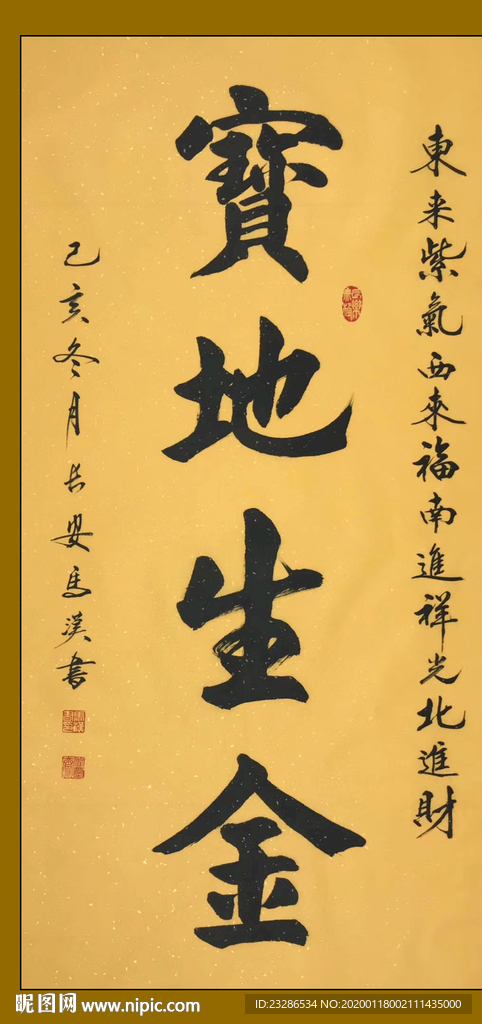 東来紫氣西來福南進祥光北進財
寶地生金
己亥冬月长安馬漢書
昵图网 www.nipic.com
ID:23286534 NO:20200118002111435000